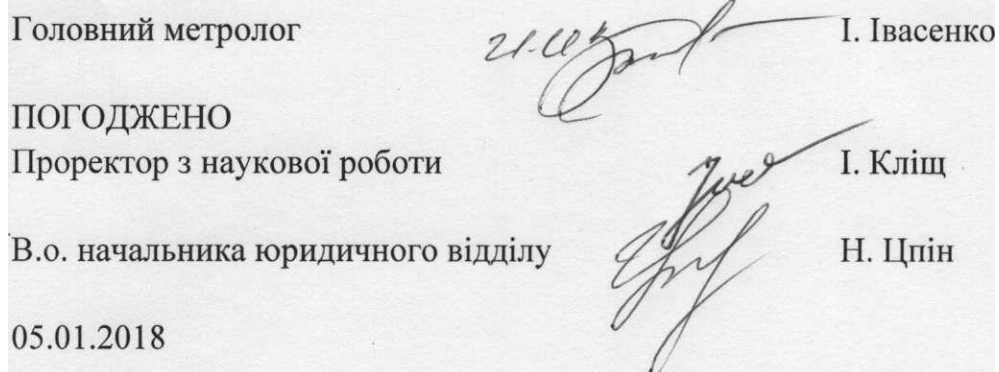 Головний метролог І. Івасенко
ПОГОДЖЕНО
Проректор з наукової роботи І. Кліщ
В.о. начальника юридичного відділу Н. Цпін
05.01.2018